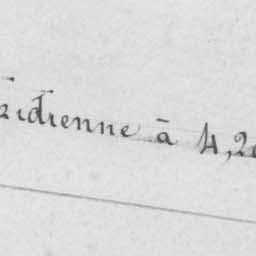 ridienne à 4,2